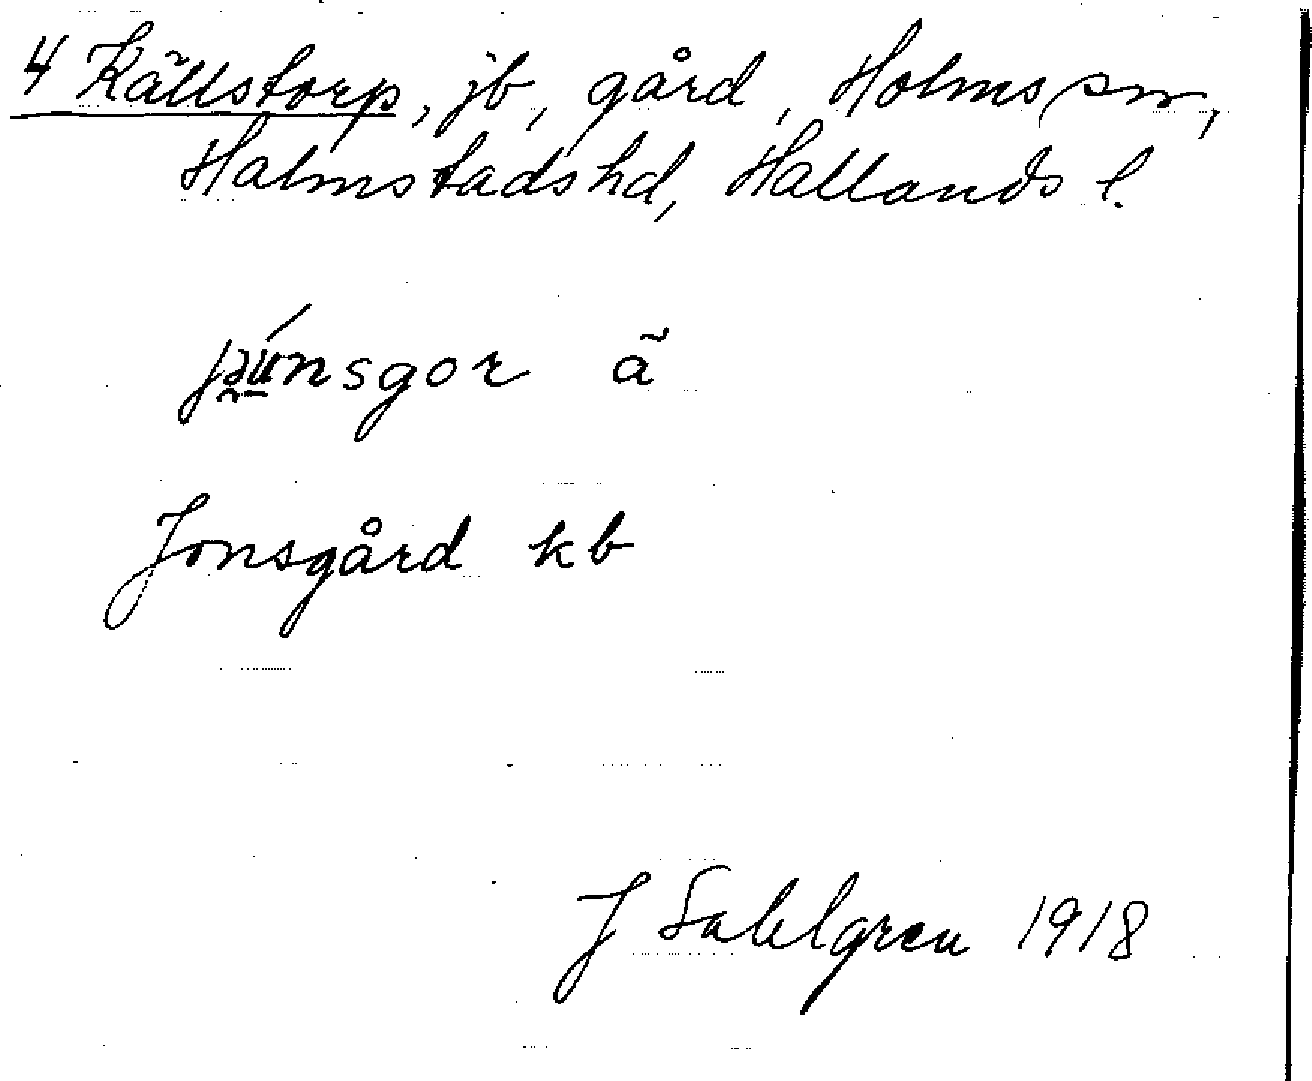 4 Källstorp, jb, gård, Holms sn,
Halmstads hd, Hallands l.
jə̯únsgor ã
Jonsgård kb
J Sahlgren 1918